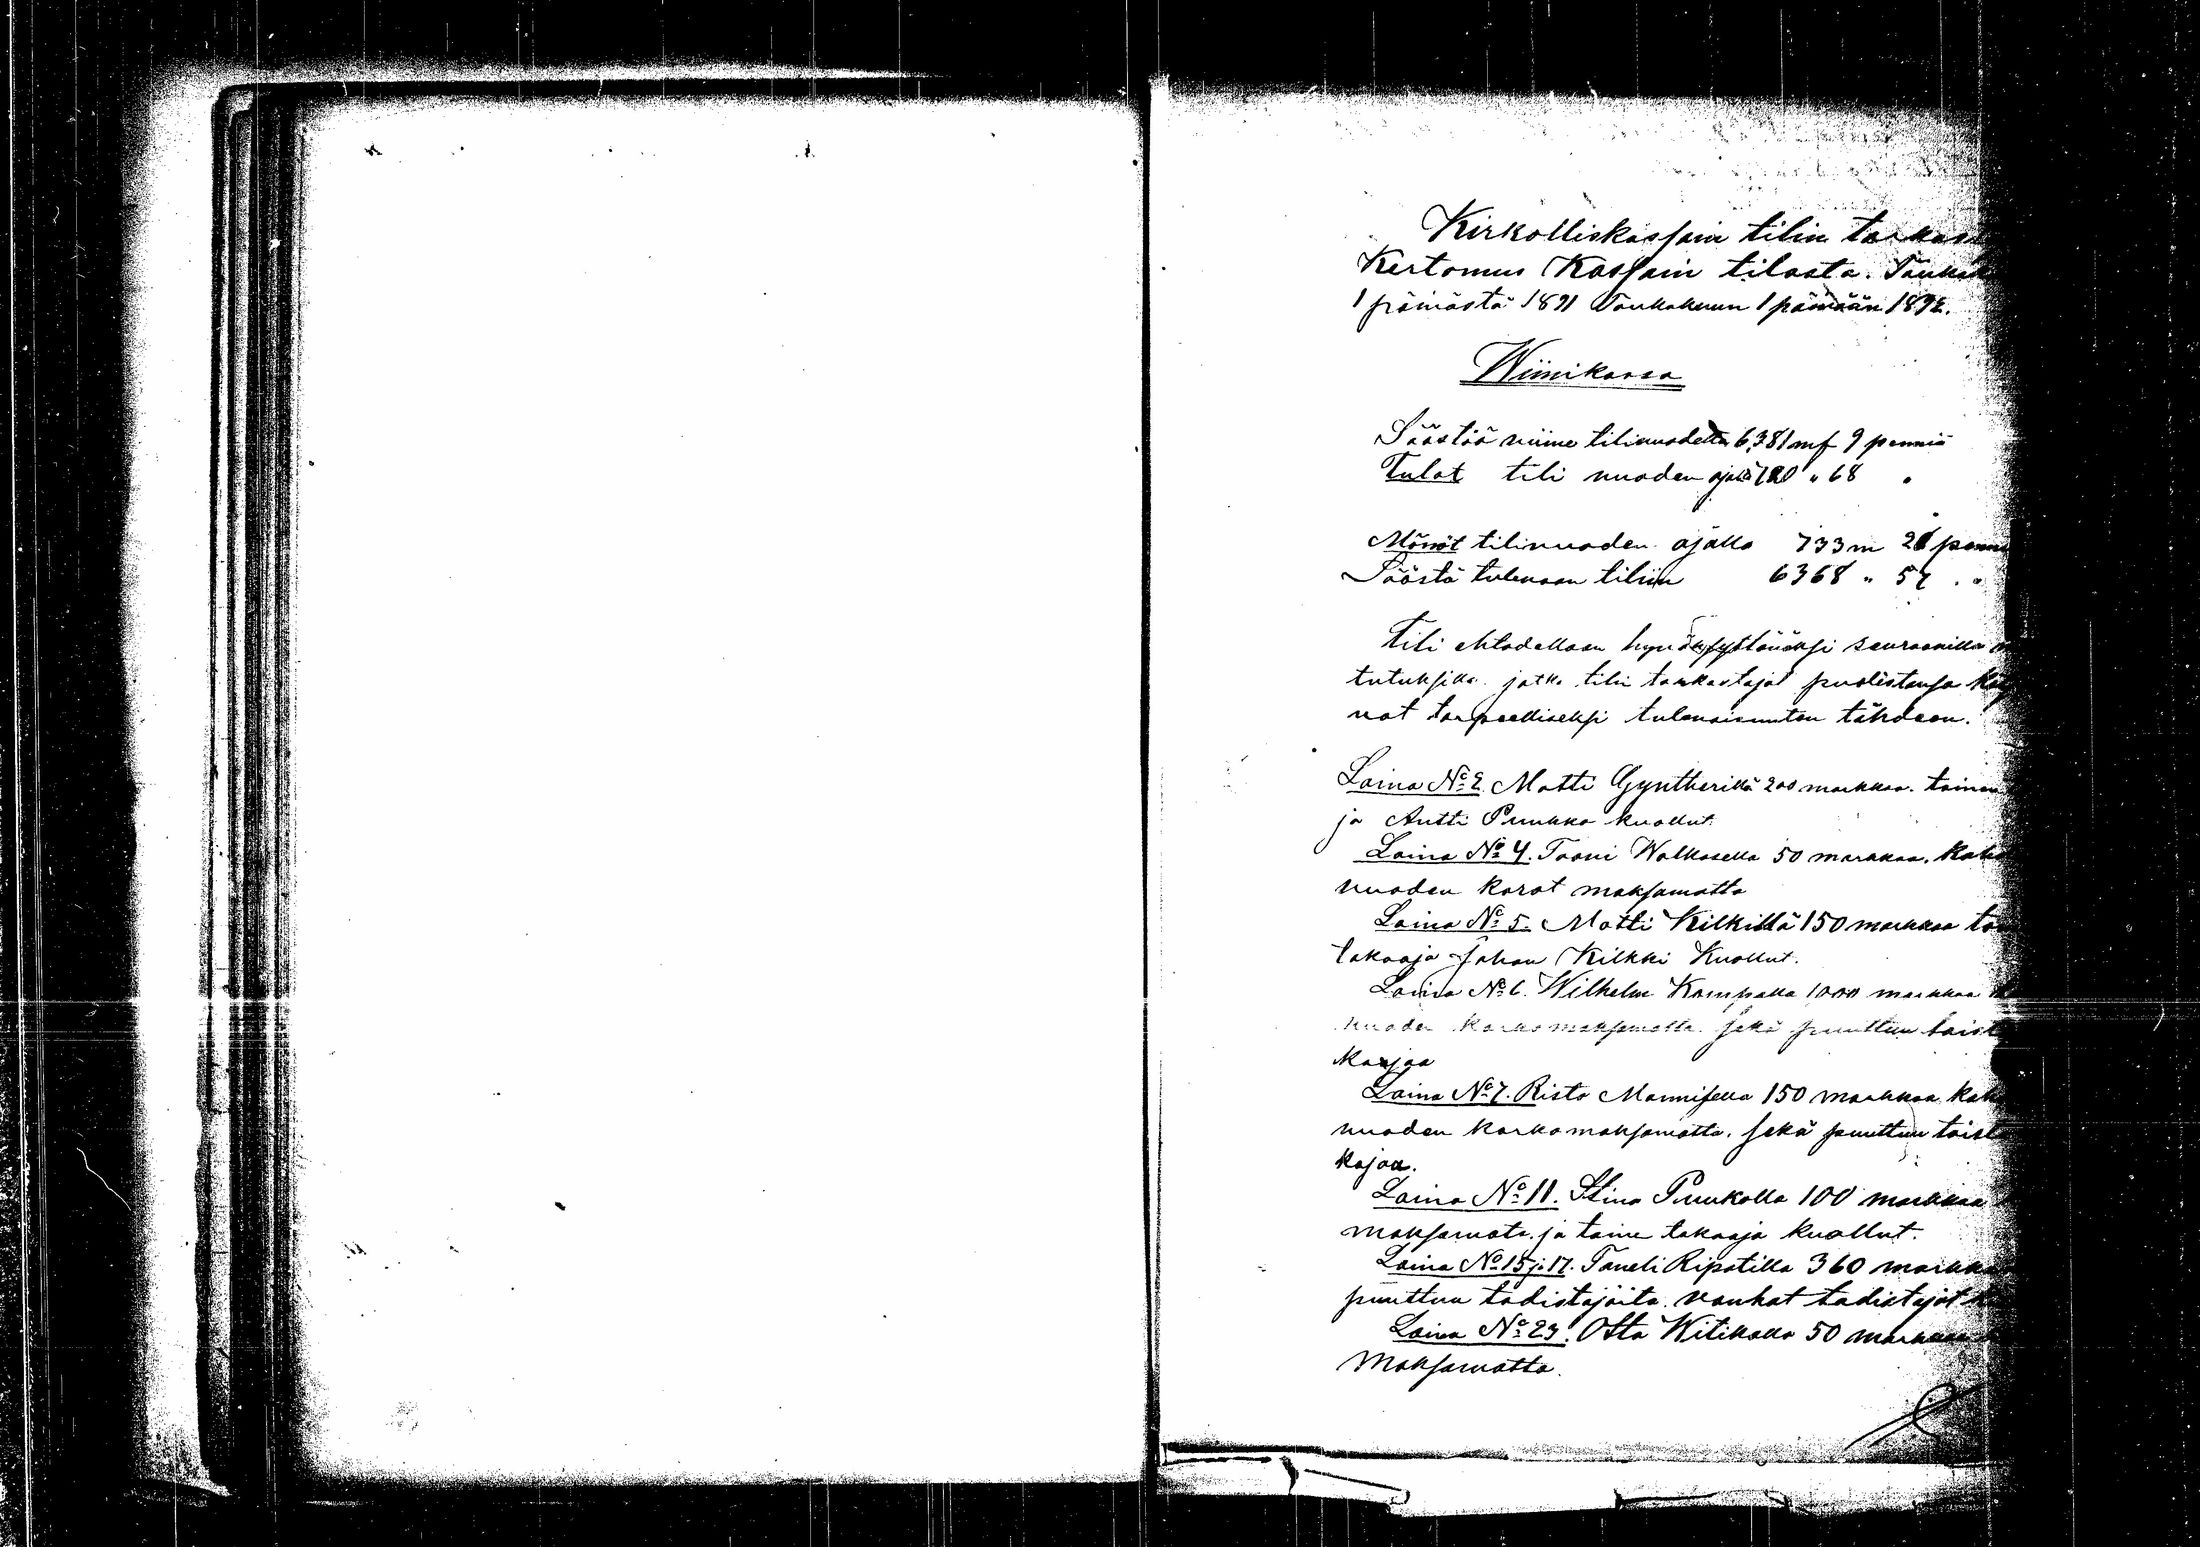 Kirkolliskassain tilin tarkas
Kertomus Kassain tilasta. Toukok
1 päivästä 1891 Toukokuun 1 päivään 1892.
Wiinikassa
Säästöä viime tilivuodelta 6,381 mf 9 penniä
Tulot tili vuoden ajalla 720 " 68 "
Mänöt tilivuoden ajalla 733 m 20 penni
Säästä tulevaan tiliin 6368 " 57 "
Tili ehdodellaan hyväksyttäväksi seuraavilla m
tutuksilla jotka tilin tarkastajat puolistansa käy
vat tarpeelliseksi tulevaisuuten tähdeen.
Laina No 2. Matti Gyntherillä 200 markkaa. toinen
ja Antti Puukko kuollut.
Laina No 4. Taavi Walkosella 50 markkaa. Kah
vuoden korot maksamatta
Laina No 5. Matti Kilkillä 150 markkaa toi
takaaja Johan Kilkki Kuollut.
Laina No 6. Wilhelm Kampalla 1000 markkaa
vuoden korko maksamatta. sekä puuttuu toist
kaajaa
Laina No 7. Risto Mannisella 150 markkaa kah
vuoden korko maksamatta. sekä puuttuu toista
kajaa.
Laina No 11. Stina Puukolla 100 markkaa
maksamata. ja toine takaaja kuollut.
Laina No 15 j. 17. Taneli Ripatilla 360 markka
puuttuu todistajoita. vanhat todistajat
Laina No 23. Otto Witikalla 50 markkaa
Maksamatta.